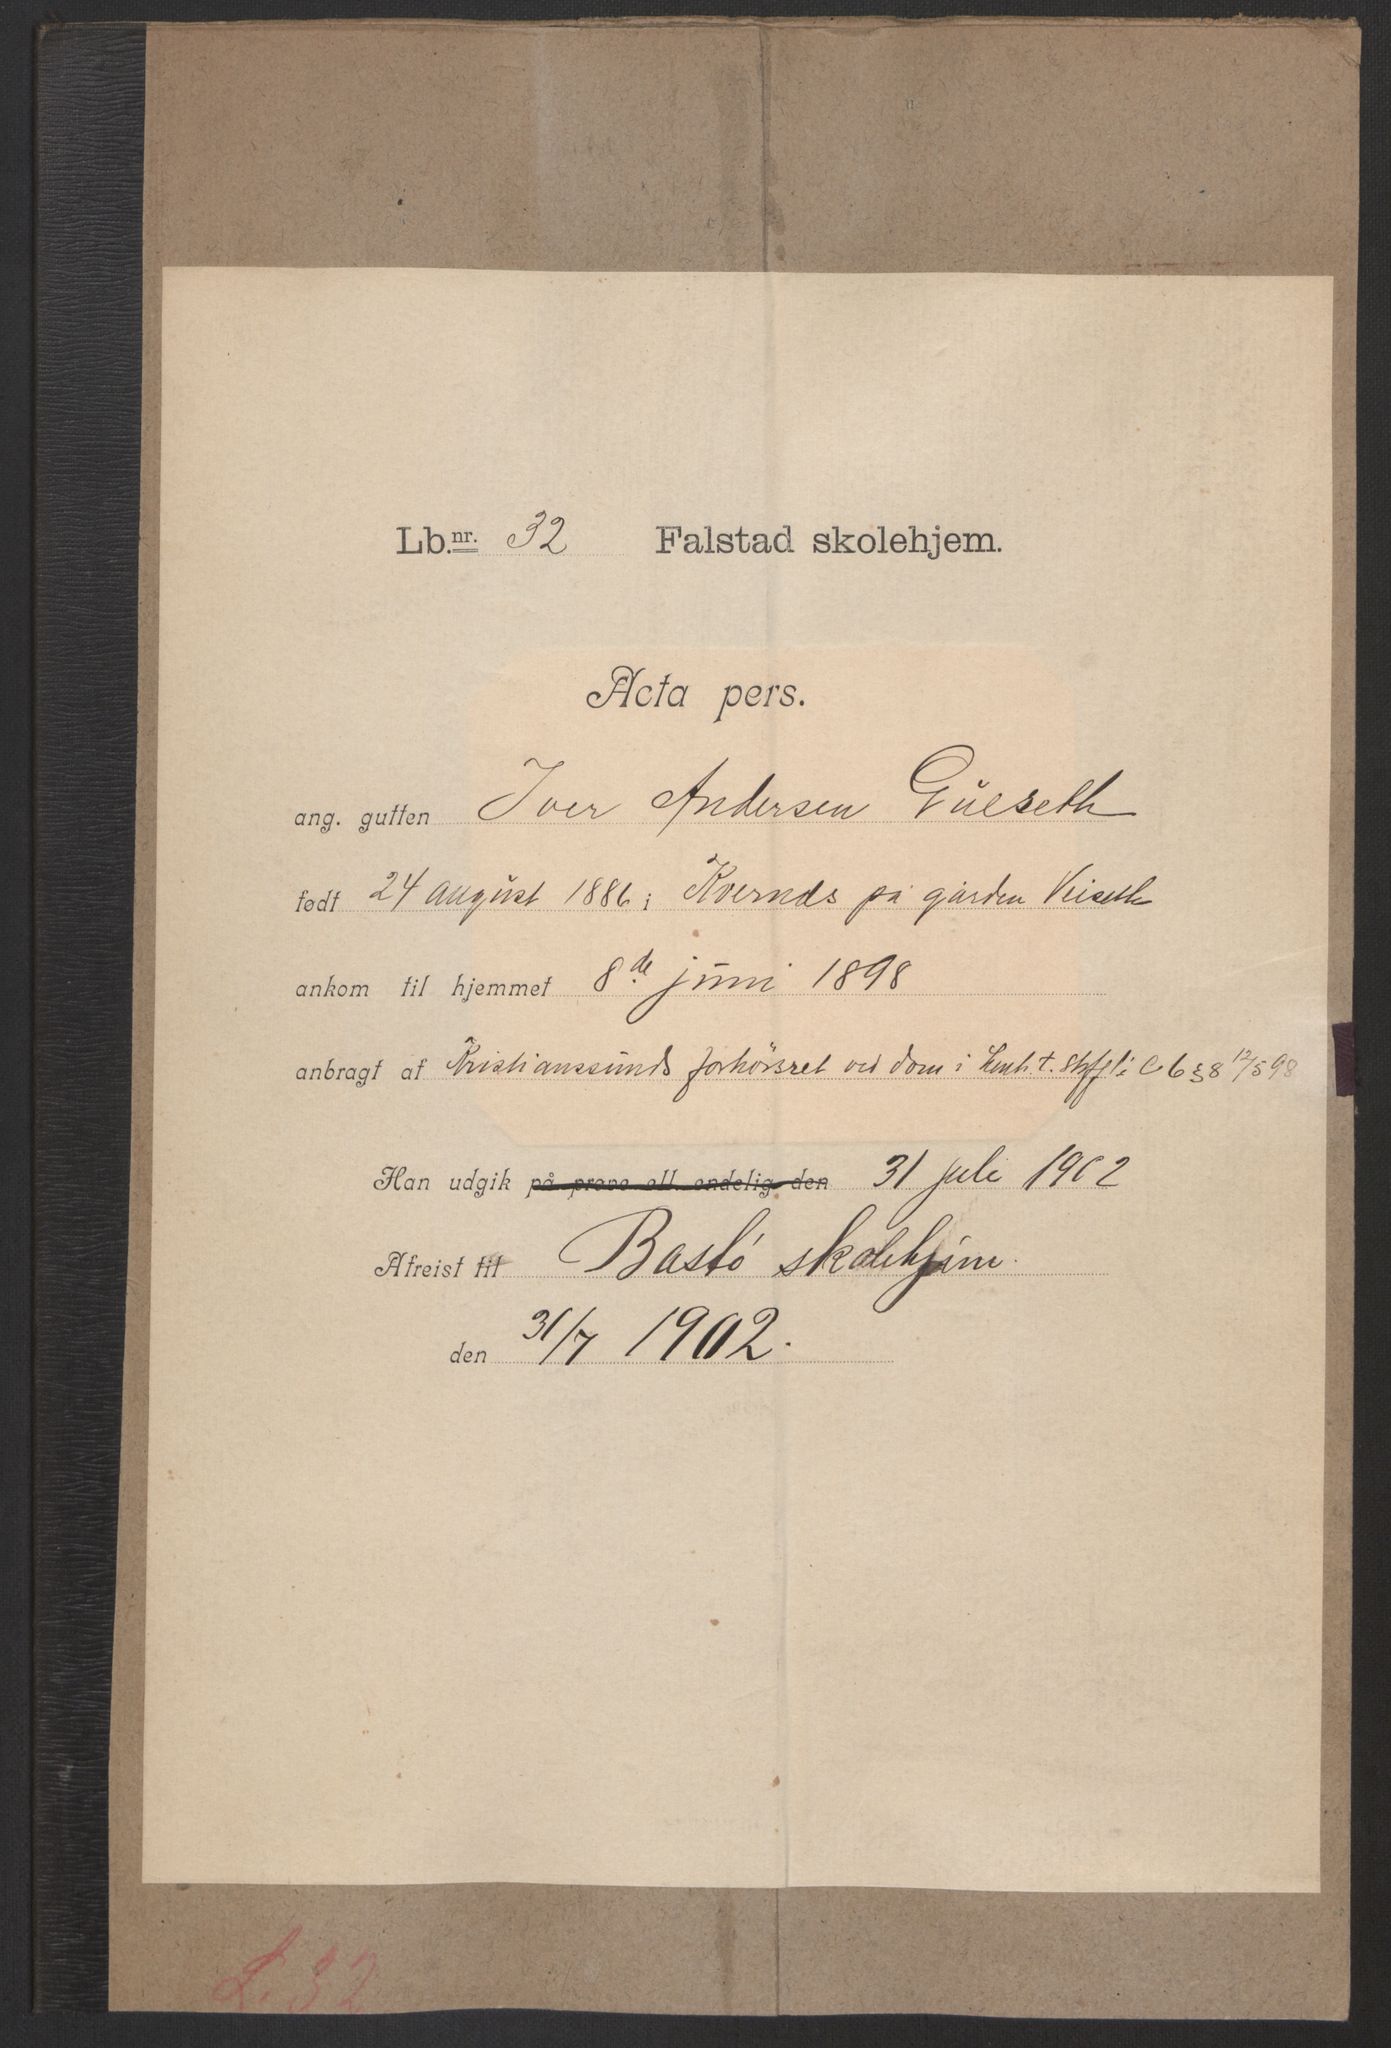 Lb.nr. 32 Falstad skolehjem.
Acta pers.
ang. gutten Iver Andersen Gulseth
født 24 august 1886 i Kvernes på gården Veiseth
ankom til hjemmet 8de juni 1898
anbragt af Kristianssunds forhörsret ved dom i Henh. t. C 6 § 8 12/5 98
Han udgik på prøve ell. endelig den 31 juli 1902
Afreist til Bastö skolehjem.
den 31/7 1902.
L. 32